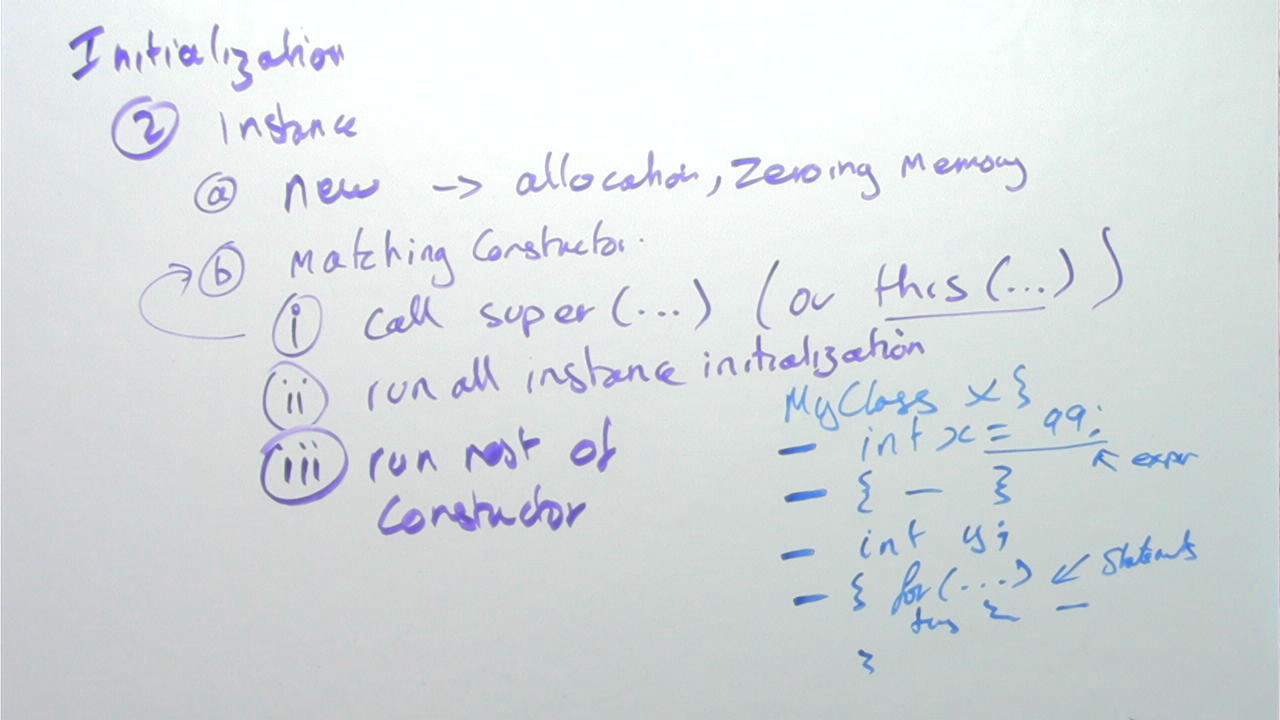 Initialization
② instance
ⓐ new -> allocation, Zeroing Memory
ⓑ Matching Constuctor.
ⓘ call super (...) (or this (...))
ⅱ run all instance initialization
ⅲ run rest of
Constuctor
MyClass x {
- int x = 99;
↖ expr
- { - }
- int y;
- { for (...) ↙ Statemts
{ -
}